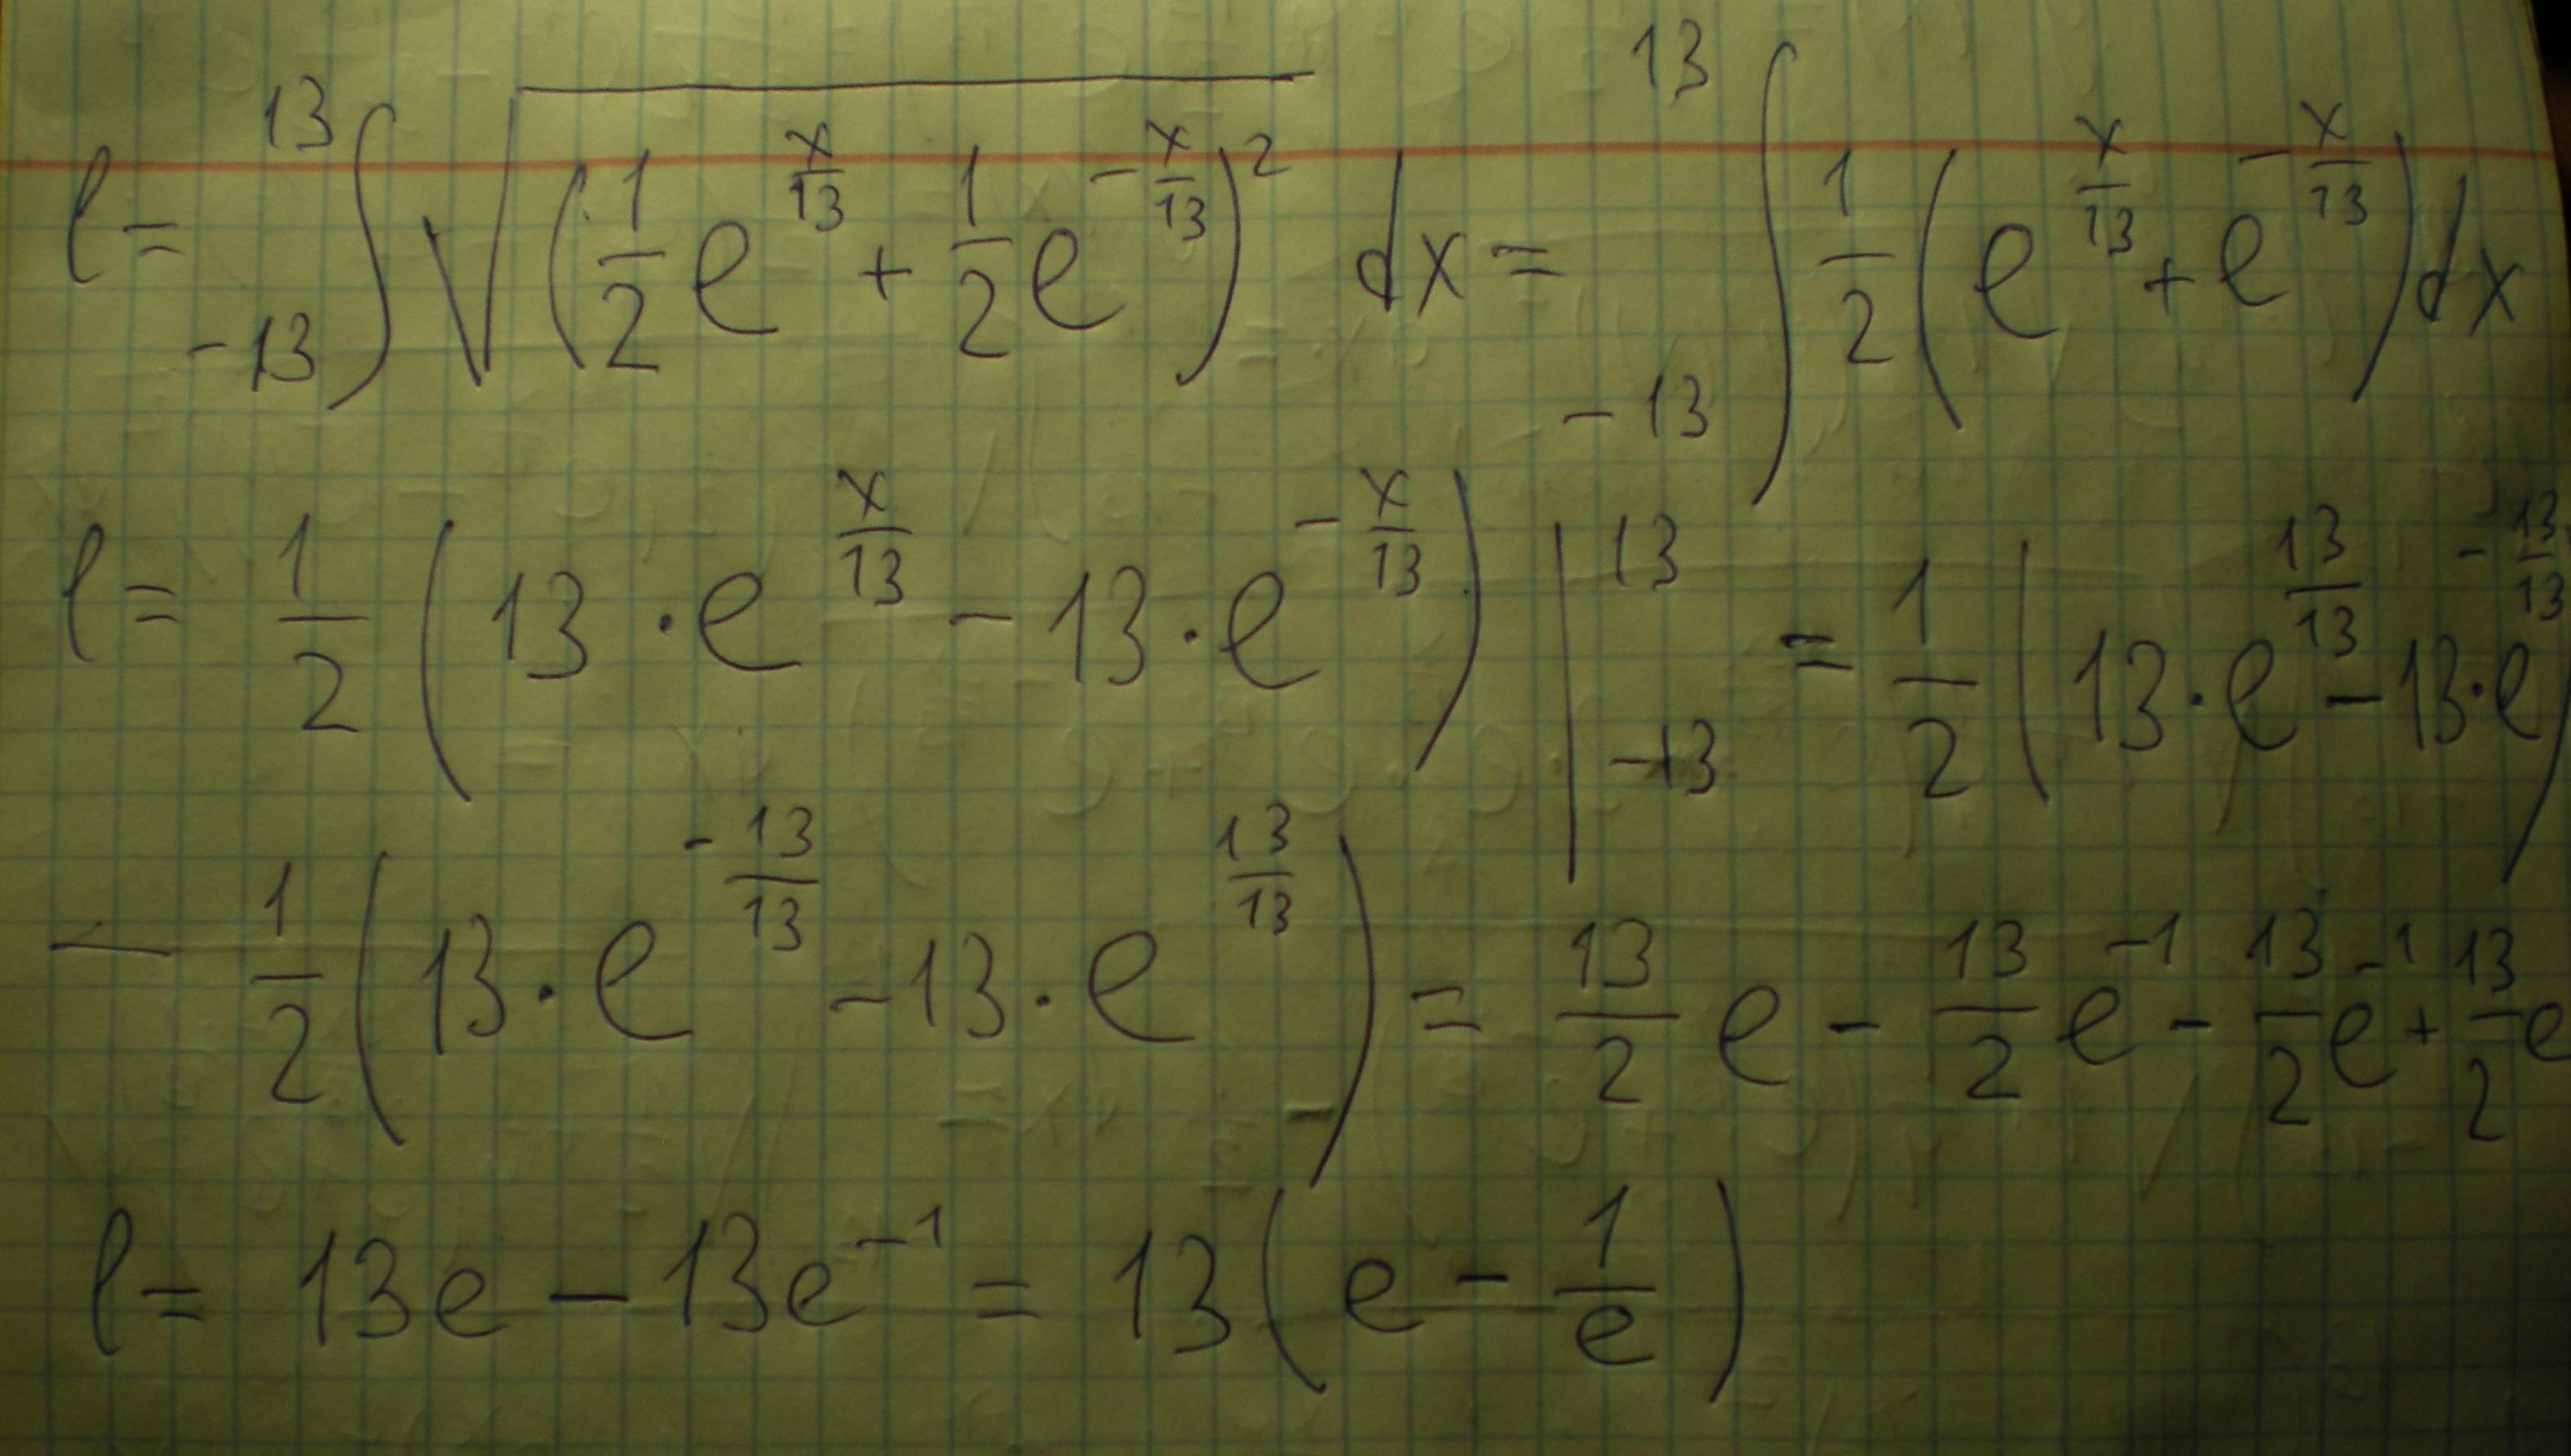 l = ₋₁₃∫¹³ √((1/2 e^(x/13) + 1/2 e^(-x/13))²) dx = ₋₁₃∫¹³ 1/2 (e^(x/13) + e^(-x/13)) dx
l = 1/2 (13 · e^(x/13) - 13 · e^(-x/13)) |₋₁₃¹³ = 1/2 (13 · e^(13/13) - 13 · e^(-13/13))
- 1/2 (13 · e^(-13/13) - 13 · e^(13/13)) = 13/2 e - 13/2 e^(-1) - 13/2 e^(-1) + 13/2 e
l = 13e - 13e^(-1) = 13 (e - 1/e)